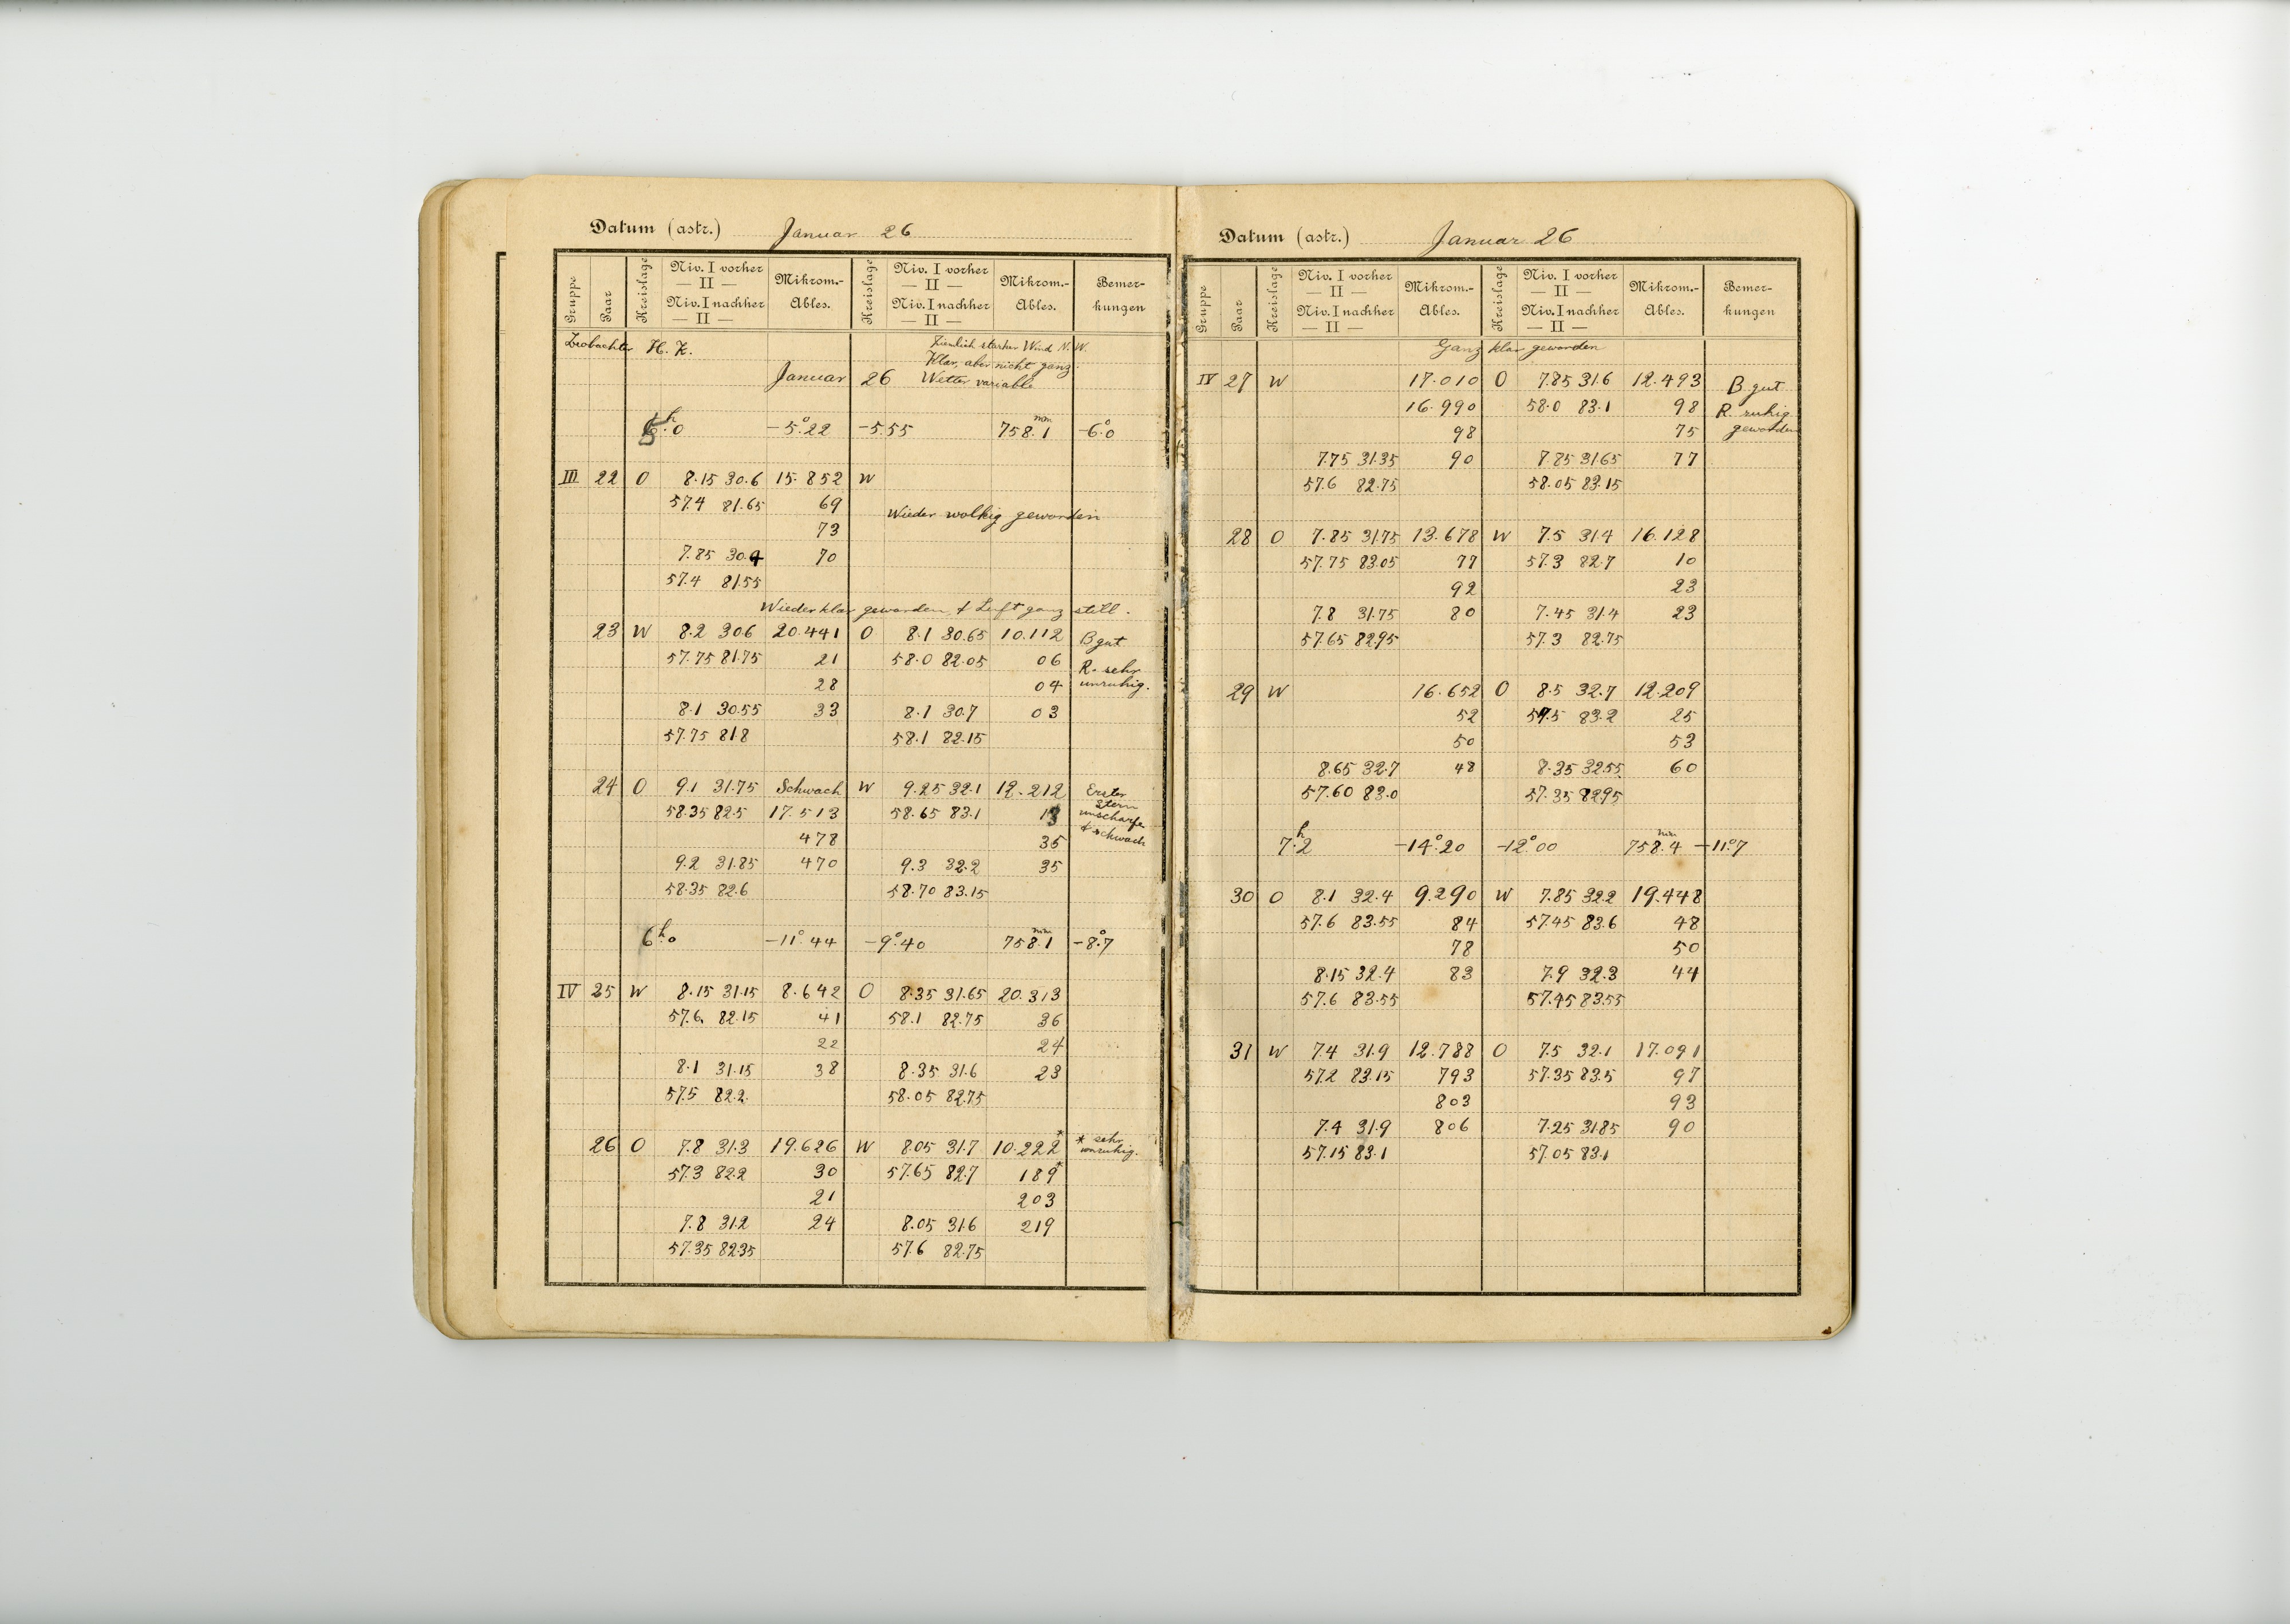 Datum (astr.) Januar 26
Gruppe Paar Kreislage Niv. I vorher Mikrom.- Kreislage Niv. I vorher Mikrom.- Bemer-
— II — — II —
Niv. I nachher Ables. Niv. I nachher Ables. kungen
— II — — II —
Beobachter H. K. Ziemlich starker Wind N.W.
Klar, aber nicht ganz.
Januar 26 Wetter variable
5h.0 −5°.22 −5.55 758.1 mm −6°.0
III 22 O 8.15 30.6 15.852 W
57.4 81.65 69
Wieder wolkig geworden
73
7.85 30.4 70
57.4 81.55
Wieder klar geworden, & Luft ganz still.
23 W 8.2 30.6 20.441 O 8.1 30.65 10.112 B gut
57.75 81.75 21 58.0 82.05 06 R. sehr
28 04 unruhig.
8.1 30.55 33 8.1 30.7 03
57.75 81.8 58.1 82.15
24 O 9.1 31.75 Schwach W 9.25 32.1 12.212 Erster
Stern
58.35 82.5 17.513 58.65 83.1 13 unscharfe
478 35 & schwach
9.2 31.85 470 9.3 32.2 35
58.35 82.6 58.70 83.15
6h.0 −11°.44 −9°.40 758.1 mm −8°.7
IV 25 W 8.15 31.15 8.642 O 8.35 31.65 20.313
57.6 82.15 41 58.1 82.75 36
22 24
8.1 31.15 38 8.35 31.6 23
57.5 82.2 58.05 82.75
26 O 7.8 31.3 19.626 W 8.05 31.7 10.222* * sehr
57.3 82.2 30 57.65 82.7 189* unruhig.
21 203
7.8 31.2 24 8.05 31.6 219
57.35 82.35 57.6 82.75
Datum (astr.) Januar 26
Gruppe Paar Kreislage Niv. I vorher Mikrom.- Kreislage Niv. I vorher Mikrom.- Bemer-
— II — — II —
Niv. I nachher Ables. Niv. I nachher Ables. kungen
— II — — II —
Ganz klar geworden
IV 27 W 17.010 O 7.85 31.6 12.493 B gut
16.990 58.0 83.1 98 R. ruhig
98 75 geworden
7.75 31.35 90 7.85 31.65 77
57.6 82.75 58.05 83.15
28 O 7.85 31.75 13.678 W 7.5 31.4 16.128
57.75 83.05 77 57.3 82.7 10
92 23
7.8 31.75 80 7.45 31.4 23
57.65 82.95 57.3 82.75
29 W 16.652 O 8.5 32.7 12.209
52 57.5 83.2 25
50 53
8.65 32.7 48 8.35 32.55 60
57.60 83.0 57.35 82.95
7h.2 −14°.20 −12°.00 758.4 mm −11°.7
30 O 8.1 32.4 9.290 W 7.85 32.2 19.448
57.6 83.55 84 57.45 83.6 48
78 50
8.15 32.4 83 7.9 32.3 44
57.6 83.55 57.45 83.55
31 W 7.4 31.9 12.788 O 7.5 32.1 17.091
57.2 83.15 793 57.35 83.5 97
803 93
7.4 31.9 806 7.25 31.85 90
57.15 83.1 57.05 83.1